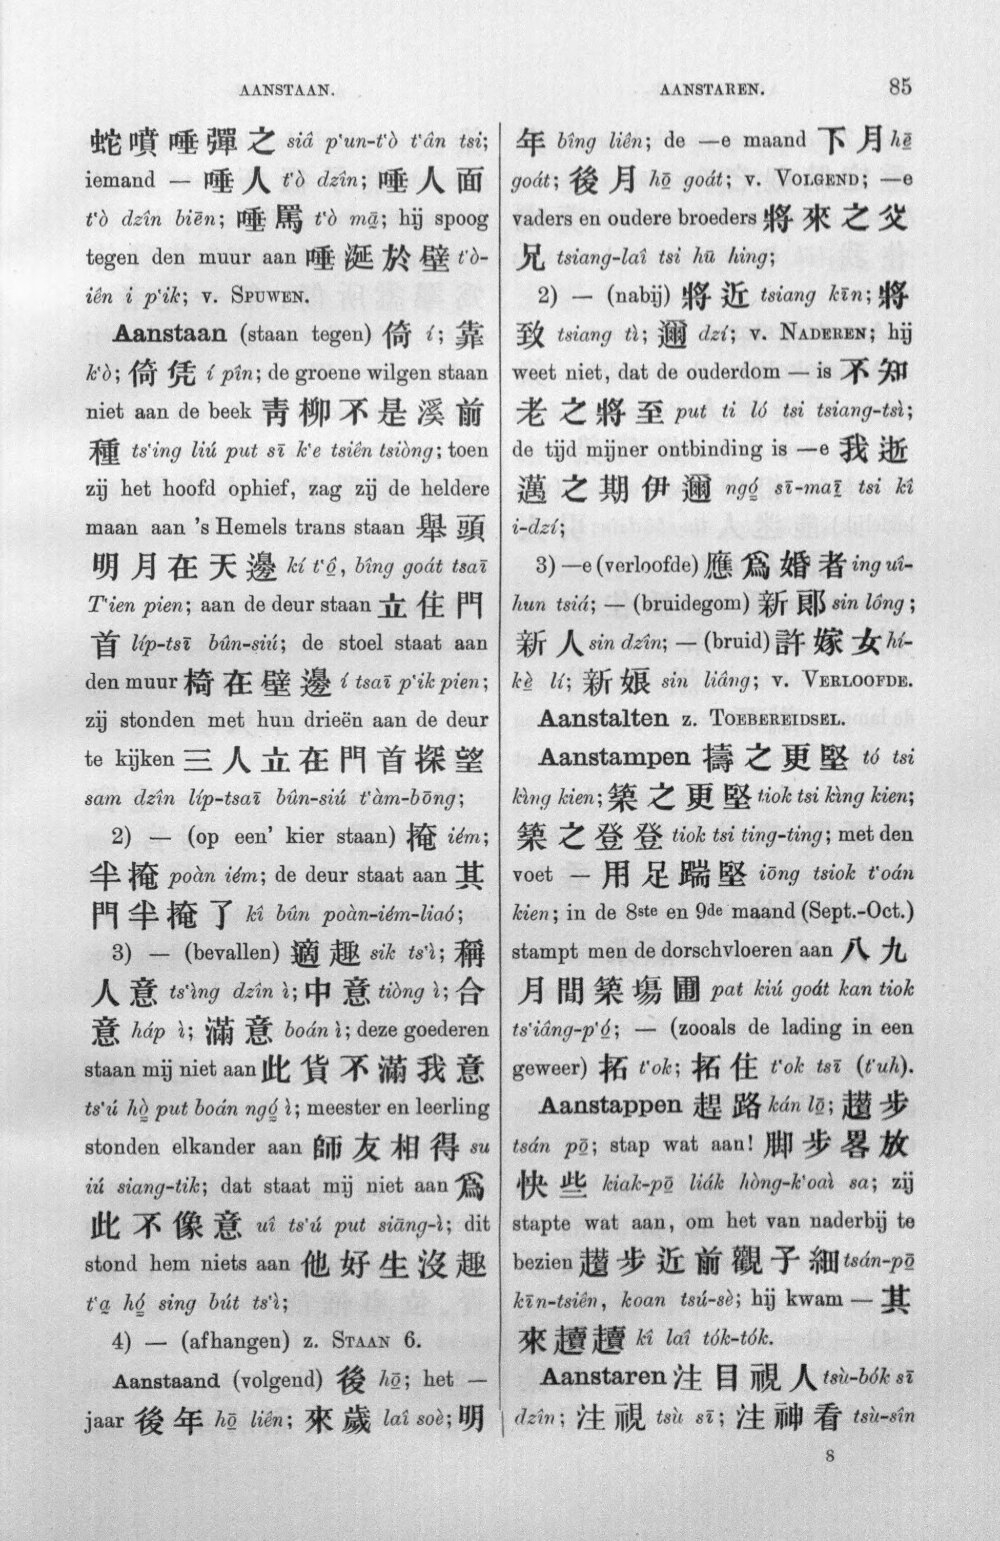 AANSTAAN.
AANSTAREN.
85
蛇噴唾彈之 siâ p‘un-t‘ò t‘ân tsi;
iemand — 唾人 t‘ò dzîn; 唾人面
t‘ò dzîn biēn; 唾罵 t‘ò mā̤; hij spoog
tegen den muur aan 唾涎於壁 t‘ò-
iên i p‘ik; v. Spuwen.
Aanstaan (staan tegen) 倚 í; 靠
k‘ò; 倚凭 í pîn; de groene wilgen staan
niet aan de beek 青柳不是溪前
種 ts‘ing liú put sī k‘e tsiên tsiòng; toen
zij het hoofd ophief, zag zij de heldere
maan aan 's Hemels trans staan 舉頭
明月在天邊 kí t‘ô̤, bîng goát tsaī
T‘ien pien; aan de deur staan 立住門
首 líp-tsī bûn-siú; de stoel staat aan
den muur 椅在壁邊 í tsaī p‘ik pien;
zij stonden met hun drieën aan de deur
te kijken 三人立在門首探望
sam dzîn líp-tsaī bûn-siú t‘àm-bōng;
2) — (op een' kier staan) 掩 iém;
半掩 poàn iém; de deur staat aan 其
門半掩了 kî bûn poàn-iém-liaó;
3) — (bevallen) 適趣 sik ts‘ì; 稱
人意 ts‘ìng dzîn ì; 中意 tiòng ì; 合
意 háp ì; 滿意 boán ì; deze goederen
staan mij niet aan 此貨不滿我意
ts‘ú hò̤ put boán ngó̤ ì; meester en leerling
stonden elkander aan 師友相得 su
iú siang-tik; dat staat mij niet aan 爲
此不像意 uî ts‘ú put siāng-ì; dit
stond hem niets aan 他好生沒趣
t‘a̤ hó̤ sing bút ts‘ì;
4) — (afhangen) z. Staan 6.
Aanstaand (volgend) 後 hō̤; het —
jaar 後年 hō̤ liên; 來歲 laî soè; 明
年 bîng liên; de —e maand 下月 hē̤
goát; 後月 hō̤ goát; v. Volgend; —e
vaders en oudere broeders 將來之父
兄 tsiang-laî tsi hū hing;
2) — (nabij) 將近 tsiang kīn; 將
致 tsiang tì; 邇 dzí; v. Naderen; hij
weet niet, dat de ouderdom — is 不知
老之將至 put ti ló tsi tsiang-tsì;
de tijd mijner ontbinding is —e 我逝
邁之期伊邇 ngó̤ sī-maī̤ tsi kî
i-dzí;
3) —e (verloofde) 應爲婚者 ing uî-
hun tsiá; — (bruidegom) 新郞 sin lông;
新人 sin dzîn; — (bruid) 許嫁女 hí-
kè̤ lí; 新娘 sin liâng; v. Verloofde.
Aanstalten z. Toebereidsel.
Aanstampen 擣之更堅 tó tsi
kìng kien; 築之更堅 tiok tsi kìng kien;
築之登登 tiok tsi ting-ting; met den
voet — 用足踹堅 iōng tsiok t‘oán
kien; in de 8ste en 9de maand (Sept.-Oct.)
stampt men de dorschvloeren aan 八九
月間築場圃 pat kiú goát kan tiok
ts‘iâng-p‘ó̤; — (zooals de lading in een
geweer) 拓 t‘ok; 拓住 t‘ok tsī (t‘uh).
Aanstappen 趕路 kán lō̤; 趲步
tsán pō̤; stap wat aan! 脚步畧放
快些 kiak-pō̤ liák hòng-k‘oaì sa; zij
stapte wat aan, om het van naderbij te
bezien 趲步近前觀子細 tsán-pō̤
kīn-tsiên, koan tsú-sè; hij kwam — 其
來趣趣 kî laî tók-tók.
Aanstaren 注目視人 tsù-bók sī
dzîn; 注視 tsù sī; 注神看 tsù-sîn
8